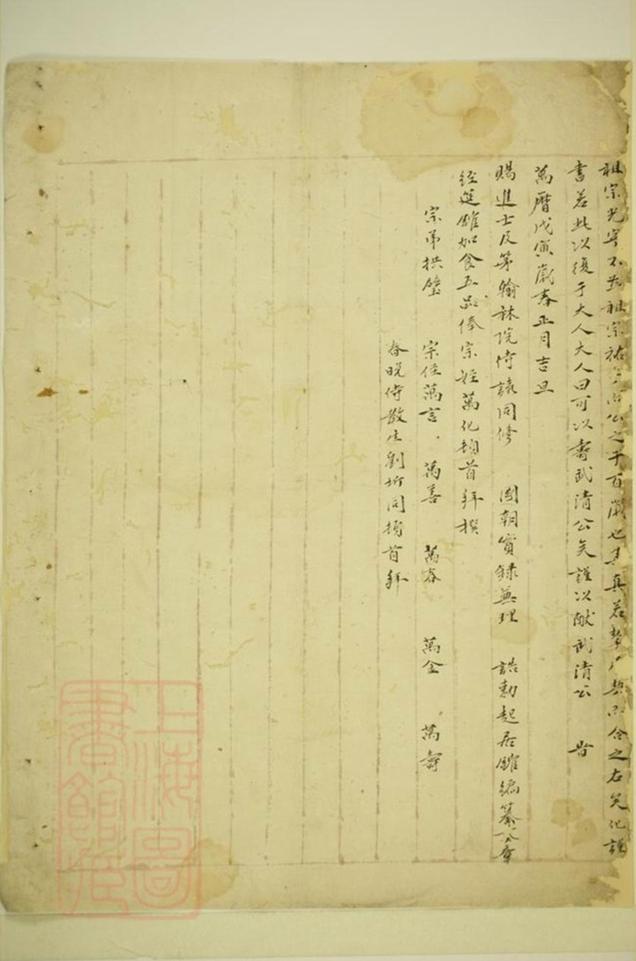 祖宗光寧不並祖宗祐公之千百歲也其真若契之右矣化謹
書若此以復于大人大人曰可以壽武清公矣謹以献武清公 旹
萬曆戊寅歲春正月吉旦
賜進士及第翰林院侍讀同修 國朝實錄兼理 誥勅起居館編纂章奏
經筵官加食五品俸宗姪萬化頓首拜撰
宗弟拱璧 宗侄萬言 萬善 萬春 萬全 萬壽
眷晚侍教生劉圻同頓首拜
上海圖書館藏